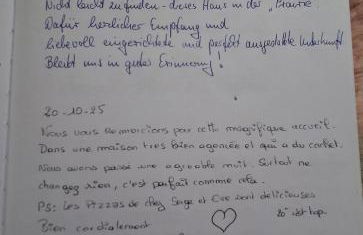 Nicht leicht zu finden - dieses Haus in der "
Dafür herzlicher Empfang und
liebevoll eingerichtete und perfekt ausgestattete Unterkunft
Bleibt uns in guter Erinnerung!
20-10-25
Nous vous Remercions par cette magnifique accueil.
Dans une maison tres bien agencée et qui a du cachet.
Nous avons passée une agréable nuit. Surtout ne
changez rien, c'est parfait comme cela.
PS: Les Pizzas de chez Sage et Eve sont délicieuses
Bien cordialement